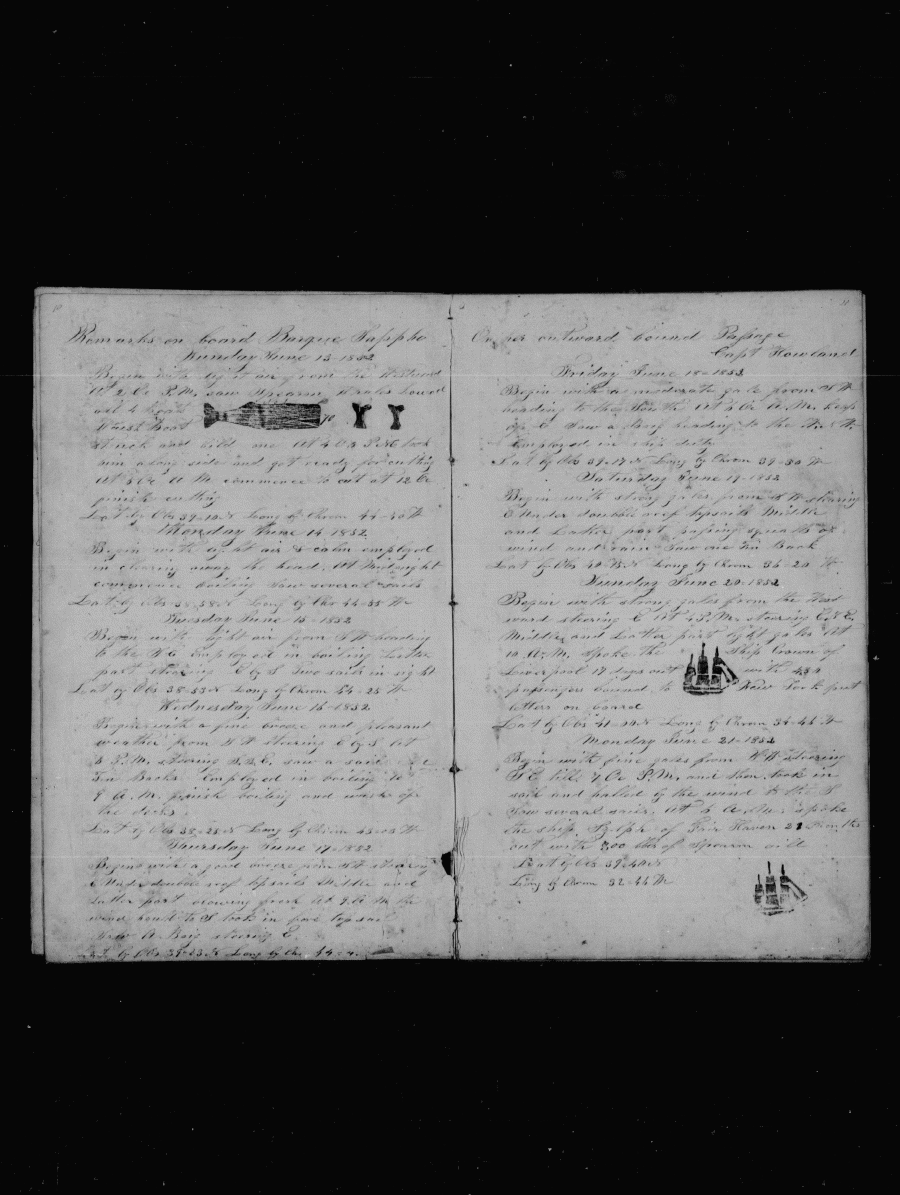 10
Remarks on board Barque Sappho
Sunday June 13-1852
Begin with light air from the Westward
At 2 Oc P.M. saw Sperm Whales Lowed
all 4 boats
Waist Boat
struck and kild one At 4 Oc P.M. took
him along side and got ready for cutting
At 5 Oc A M commence to cut at 12 Oc
finish cutting
Lat by Obs 39-10 N Long by Chrom 44-40 W
Monday June 14-1852
Begin with light air & calm employed
in clearing away the head. At Midnight
commence boiling Saw several sails
Lat by Obs 38-58 N Long by Chr 44-35 W
Tuesday June 15-1852
Begin with light air from S W heading
to the S E Employed in boiling Latter
part steering E by S Two sails in sight
Lat by Obs 38-53 N Long by Chrom 54-25 W
Wednesday June 16-1852
Begin with a fine breeze and pleasant
weather from S W steering E by S At
5 P.M. steering S.S.E. saw a sail
Fin Backs Employed in boiling
9 A.M. finish boiling and wash off
the decks
Lat by Obs 38-28 N Long by Chrom 43-03 W
Thursday June 17-1852
Begin with a good breeze from S W steering
E Under double reef topsails Middle and
Latter part blowing fresh At 9 A M the
wind hauld to S took in fore top sail
saw A Brig steering E.
Lat by Obs 39-23 N Long by Chr 44
11
On her outward bound Passage
Capt Howland
Friday June 18-1852
Begin with a moderate gale from S W
heading to the South At 4 Oc A.M. kept
off E Saw a brig heading to the N. W.
Employed in ship duty
Lat by Obs 39-17 N Long by Chrom 39-50 W
Saturday June 19-1852
Begin with strong gales from S W steering
E Under double reef topsails Middle
and Latter part passing squalls of
wind and rain Saw one Fin Back
Lat by Obs 40-15 N Long by Chrom 36-20 W
Sunday June 20-1852
Begin with strong gales from the West
ward steering E At 4 P.M. steering E.N.E.
Middle and Latter part light gales At
10 A.M. spoke the Ship Crown of
Liverpool 17 days out with 434
passengers bound to New York put
letters on board
Lat by Obs 41-10 N Long by Chrom 34-46 W
Monday June 21-1852
Begin with fine gales from W N steering
S E till 7 Oc P.M. and then took in
sail and halled by the wind to the S
Saw several sails. At 5 A.M. spoke
the ship Sylph of Fair Haven 21 Months
out with 700 bbs of Sperm oil
Lat by Obs 39-40 N
Long by Chrom 32-44 W